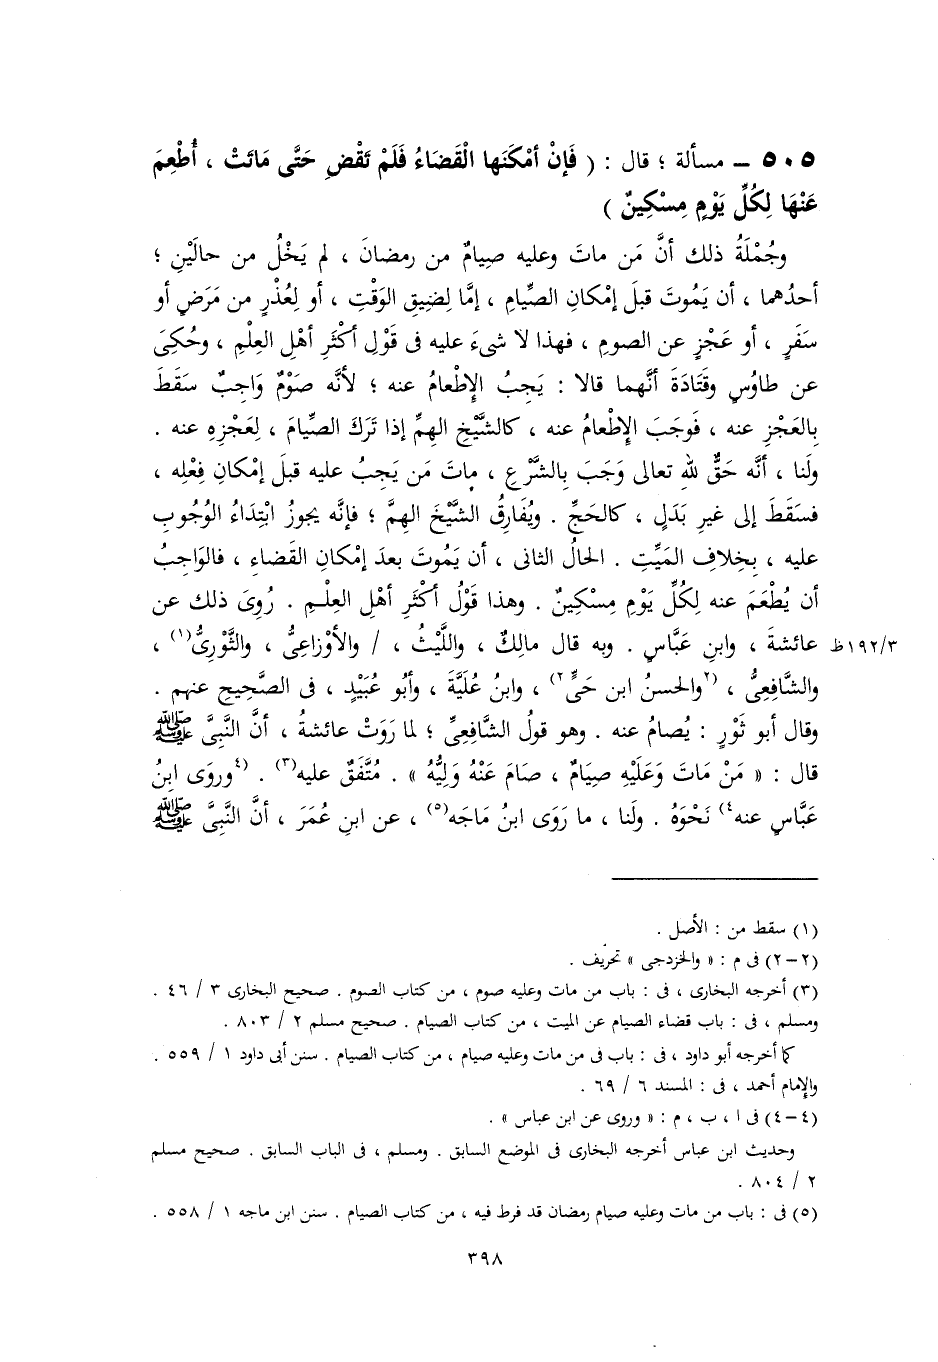 ٥٠٥ – مسألة ؛ قال : ( فَإنْ أمْكَنَها الْقَضَاءُ فَلَمْ تَقْضِ حَتَّى مَاتَتْ ، أُطْعِمَ
عَنْهَا لِكُلِّ يَوْمٍ مِسْكِينٌ )
وجُمْلَةُ ذلك أنَّ مَن ماتَ وعليه صِيامٌ من رمضانَ ، لم يَخْلُ من حالَيْنِ ؛
أحدُهما ، أن يَمُوتَ قبلَ إمْكانِ الصِّيامِ ، إمَّا لِضِيقِ الوَقْتِ ، أو لِعُذْرٍ من مَرَضٍ أو
سَفَرٍ ، أو عَجْزٍ عن الصومِ ، فهذا لا شىءَ عليه فى قَوْلِ أكْثَرِ أهْلِ العِلْمِ ، وحُكِىَ
عن طاوُسٍ وقَتَادَةَ أنَّهما قالا : يَجِبُ الإِطْعامُ عنه ؛ لأنَّه صَوْمٌ وَاجِبٌ سَقَطَ
بالعَجْزِ عنه ، فَوجَبَ الإِطْعامُ عنه ، كالشَّيْخِ الهِمِّ إذا تَرَكَ الصِّيامَ ، لِعَجْزِهِ عنه .
ولَنا ، أنَّه حَقٌّ للهِ تعالى وَجَبَ بِالشَّرْعِ ، ماتَ مَن يَجِبُ عليه قبلَ إمْكانِ فِعْلِه ،
فسَقَطَ إلى غيرِ بَدَلٍ ، كالحَجِّ . ويُفَارِقُ الشَّيْخَ الهِمَّ ؛ فإنَّه يجوزُ ابْتِدَاءُ الوُجُوبِ
عليه ، بخِلافِ المَيِّتِ . الحالُ الثانى ، أن يَمُوتَ بعدَ إمْكانِ القَضاءِ ، فالوَاجِبُ
أن يُطْعَمَ عنه لِكُلِّ يَوْمٍ مِسْكِينٌ . وهذا قَوْلُ أكْثَرِ أهْلِ العِلْمِ . رُوِىَ ذلك عن
عائشةَ ، وابنِ عَبَّاسٍ . وبه قال مالِكٌ ، واللَّيْثُ ، / والأوْزاعِىُّ ، والثَّوْرِىُّ(١) ، ١٩٢/٣ظ
والشَّافِعِىُّ ، (٢والحسنُ ابن حَىٍّ٢) ، وابنُ عُلَيَّةَ ، وأبُو عُبَيْدٍ ، فى الصَّحِيحِ عنهم .
وقال أبو ثَوْرٍ : يُصامُ عنه . وهو قولُ الشَّافِعِىِّ ؛ لما رَوَتْ عائشةُ ، أنَّ النَّبِىَّ ﷺ
قال : « مَنْ مَاتَ وَعَلَيْهِ صِيَامٌ ، صَامَ عَنْهُ وَلِيُّهُ » . مُتَّفَقٌ عليه(٣) . (٤وروَى ابنُ
عَبَّاسٍ عنه٤) نَحْوَهُ . ولَنا ، ما رَوَى ابنُ مَاجَه(٥) ، عن ابنِ عُمَرَ ، أنَّ النَّبِىَّ ﷺ
(١) سقط من : الأصل .
(٢–٢) فى م : « والخزدجى » تحريف .
(٣) أخرجه البخارى ، فى : باب من مات وعليه صوم ، من كتاب الصوم . صحيح البخارى ٣ / ٤٦ .
ومسلم ، فى : باب قضاء الصيام عن الميت ، من كتاب الصيام . صحيح مسلم ٢ / ٨٠٣ .
كما أخرجه أبو داود ، فى : باب فى من مات وعليه صيام ، من كتاب الصيام . سنن أبى داود ١ / ٥٥٩ .
والإمام أحمد ، فى : المسند ٦ / ٦٩ .
(٤–٤) فى ا ، ب ، م : « وروى عن ابن عباس » .
وحديث ابن عباس أخرجه البخارى فى الموضع السابق . ومسلم ، فى الباب السابق . صحيح مسلم
٢ / ٨٠٤ .
(٥) فى : باب من مات وعليه صيام رمضان قد فرط فيه ، من كتاب الصيام . سنن ابن ماجه ١ / ٥٥٨ .
٣٩٨